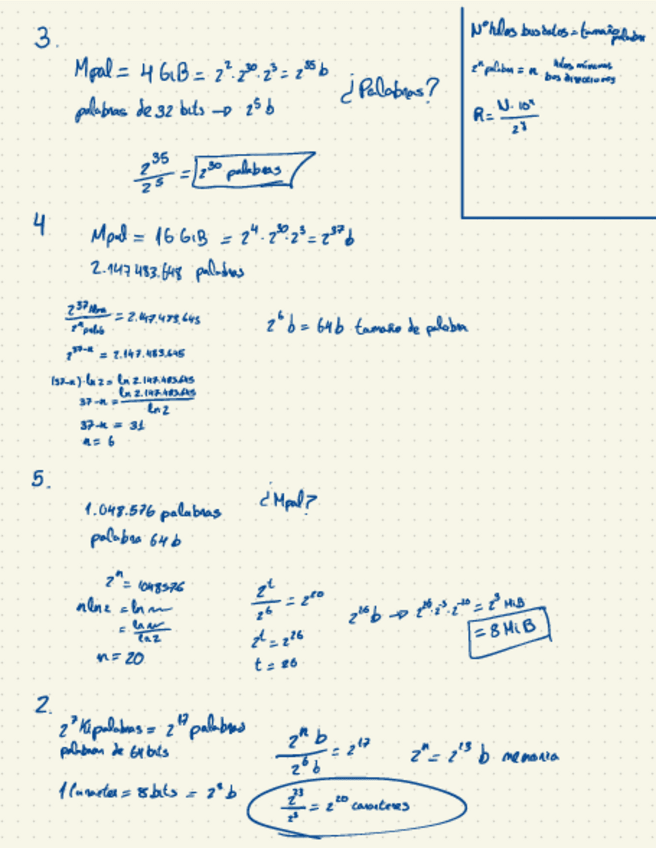 3.
Mpal = 4 GiB = 2² · 2³⁰ · 2³ = 2³⁵ b
palabras de 32 bits → 2⁵ b
¿Palabras?
2³⁵ / 2⁵ = 2³⁰ palabras
Nº hilos bus datos = tamaño palabra
2ⁿ palabra = n hilos mínimos
bus direcciones
4
Mpal = 16 GiB = 2⁴ · 2³⁰ · 2³ = 2³⁷ b
2.147.483.648 palabras
= 2.147.483.645
2³⁷⁻ⁿ = 2.147.483.645
(37-n) · ln 2 = ln 2.147.483.645
37-n = ln 2.147.483.645 / ln 2
37-n = 31
n = 6
2⁶ b = 64 b tamaño de palabra
5.
1.048.576 palabras
palabra 64 b
¿Mpal?
2ⁿ = 1048576
n ln 2 = ln
n = 20
2ᵗ / 2⁶ = 2²⁰
2ᵗ = 2²⁶
t = 26
2²⁶ b →
= 2³ MiB
= 8 MiB
2.
2⁷ Kipalabras = 2¹⁷ palabras
palabras de 64 bits
1 Caracter = 8 bits = 2³ b
2ⁿ b / 2⁶ b = 2¹⁷
2ⁿ = 2²³ b memoria
2²³ / 2³ = 2²⁰ caracteres